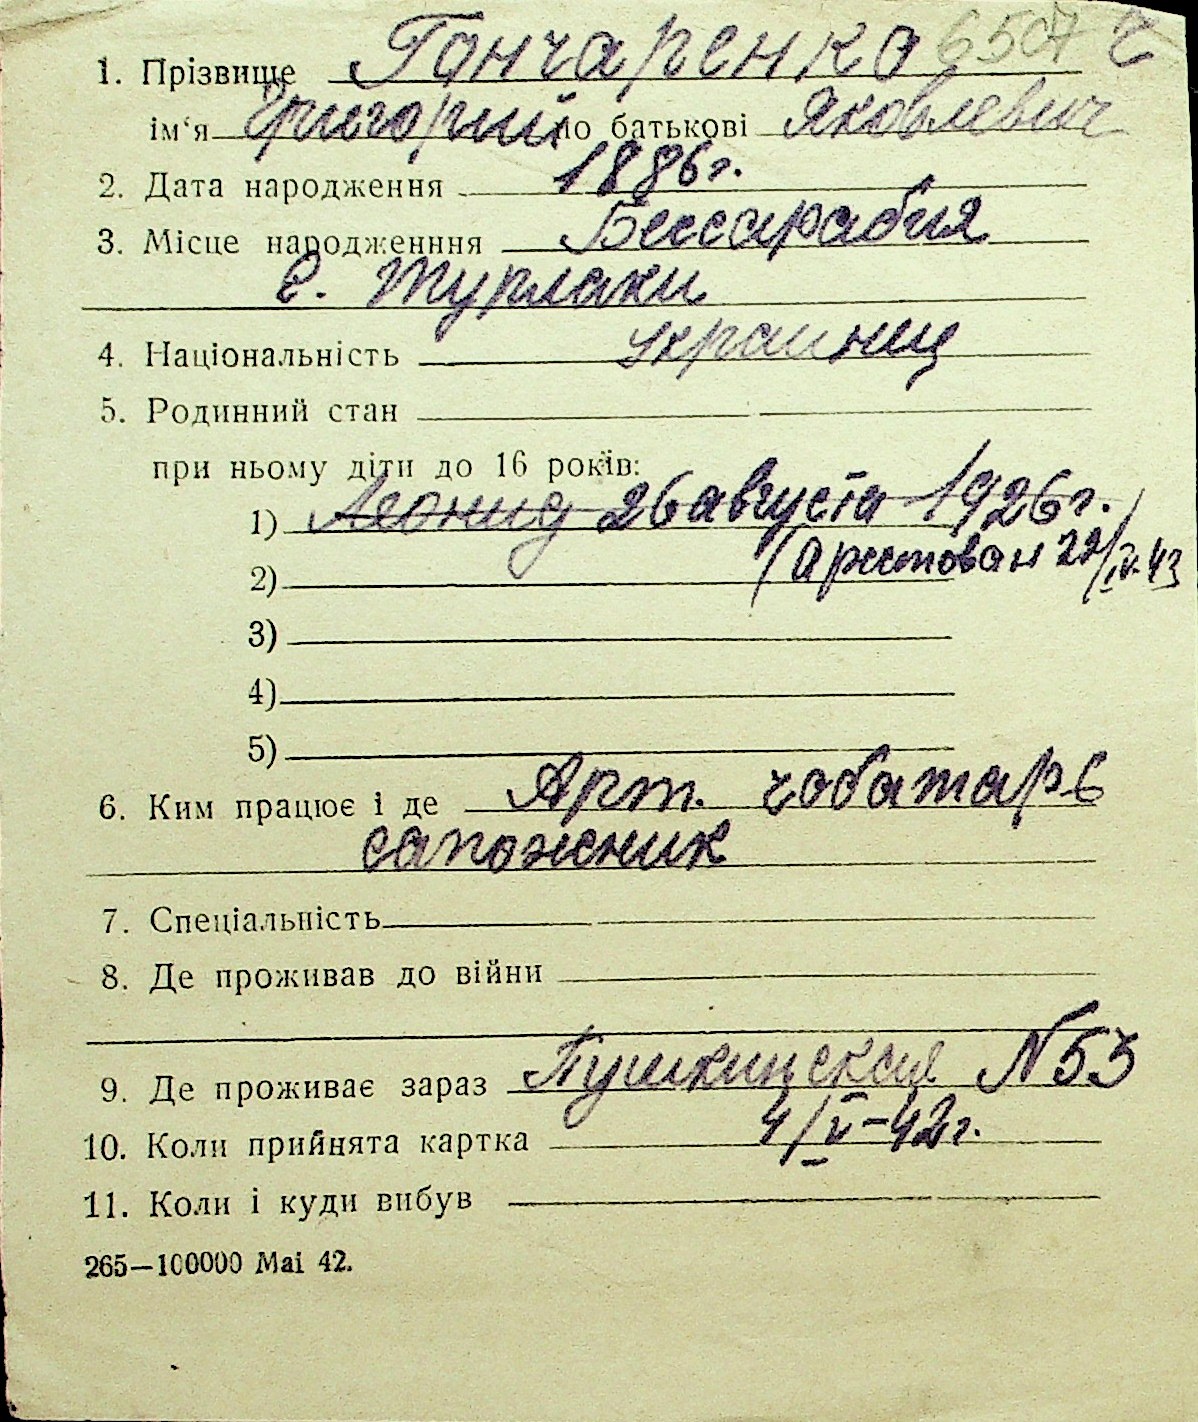 6507 с
1. Прізвище Гончаренко
ім‘я Григорий по батькові Яковлевич
2. Дата народження 1886 г.
3. Місце народженння Бессарабия
с. Турлаки
4. Національність украинец
5. Родинний стан
при ньому діти до 16 років:
1) Леонид 26 августа 1926 г.
2) (Арестован 22/IV-43
3)
4)
5)
6. Ким працює і де Арт. чоботарь
сапожник
7. Спеціальність
8. Де проживав до війни
9. Де проживає зараз Пушкинская N 53
10. Коли прийнята картка 4/V-42 г.
11. Коли і куди вибув
265—100000 Mai 42.